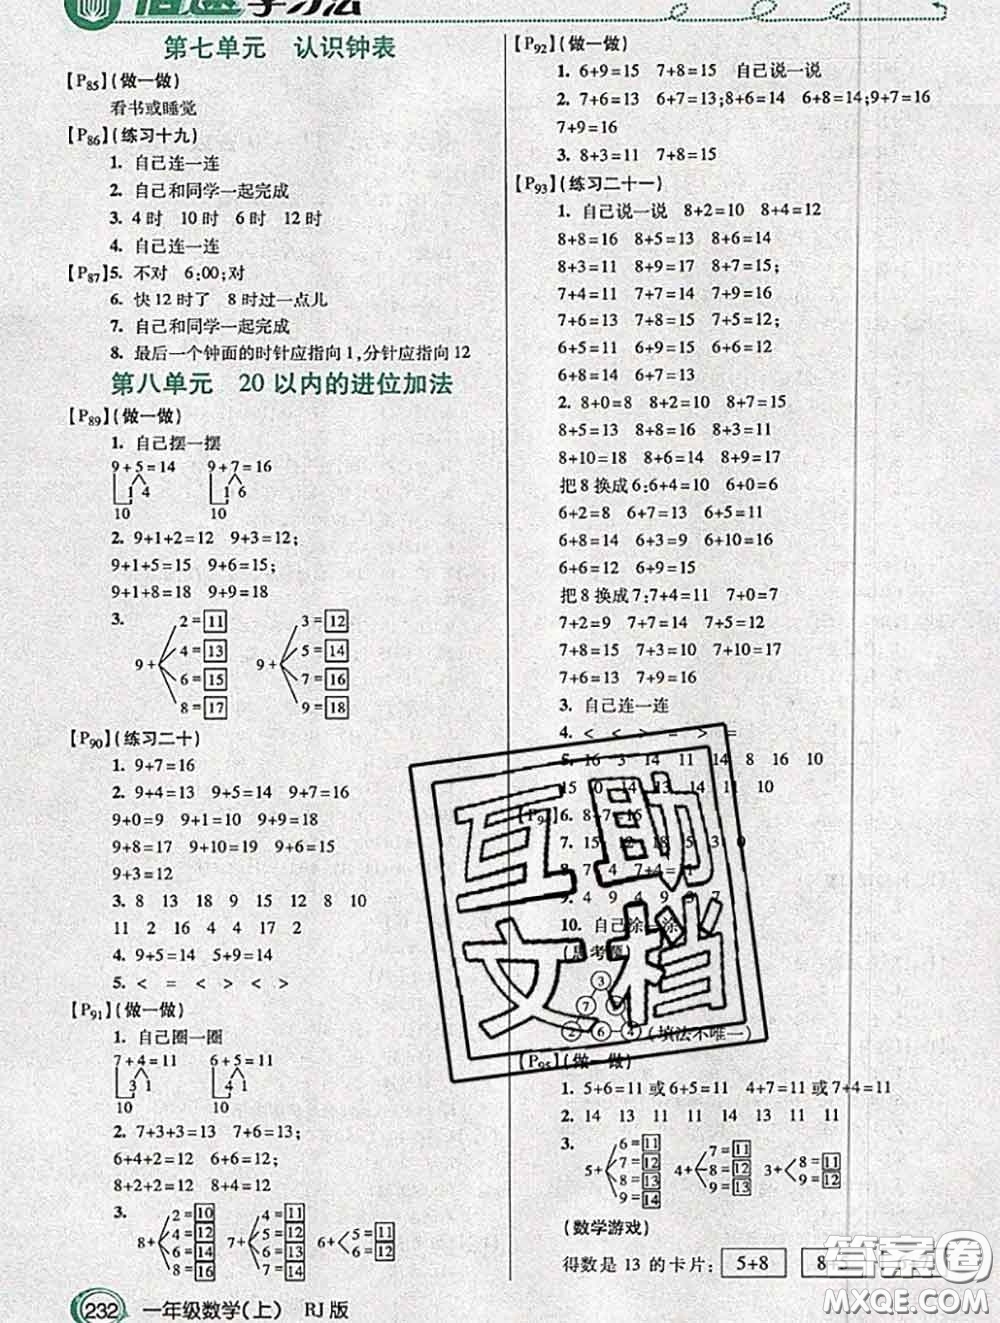 倍速学习法
第七单元 认识钟表
【P85】(做一做)
看书或睡觉
【P86】(练习十九)
1. 自己连一连
2. 自己和同学一起完成
3. 4时 10时 6时 12时
4. 自己连一连
【P87】5. 不对 6:00;对
6. 快12时了 8时过一点儿
7. 自己和同学一起完成
8. 最后一个钟面的时针应指向1,分针应指向12
第八单元 20以内的进位加法
【P89】(做一做)
1. 自己摆一摆
9+5=14 9+7=16
1 4 1 6
10 10
2. 9+1+2=12 9+3=12;
9+1+5=15 9+6=15;
9+1+8=18 9+9=18
3. 2=11 3=12
4=13 5=14
9+ 9+
6=15 7=16
8=17 9=18
【P90】(练习二十)
1. 9+7=16
2. 9+4=13 9+5=14 9+7=16
9+0=9 9+1=10 9+9=18
9+8=17 9+6=15 9+2=11
9+3=12
3. 8 13 18 9 15 16 10
11 2 16 4 4 17 2
4. 9+5=14 5+9=14
5. < = < > < >
【P91】(做一做)
1. 自己圈一圈
7+4=11 6+5=11
3 1 4 1
10 10
2. 7+3+3=13 7+6=13;
6+4+2=12 6+6=12;
8+2+2=12 8+4=12
3. 2=10 4=11
8+ 4=12 7+ 5=12 6+ 5=11
6=14 6=13 6=12
8=16 7=14
232 一年级数学(上) RJ版
【P92】(做一做)
1. 6+9=15 7+8=15 自己说一说
2. 7+6=13 6+7=13;8+6=14 6+8=14;9+7=16
7+9=16
3. 8+3=11 7+8=15
【P93】(练习二十一)
1. 自己说一说 8+2=10 8+4=12
8+8=16 8+5=13 8+6=14
8+3=11 8+9=17 8+7=15;
7+4=11 7+7=14 7+8=15
7+6=13 7+9=16 7+5=12;
6+5=11 6+8=14 6+7=13
6+6=12 6+9=15
2. 8+0=8 8+8=16 8+7=15
8+5=13 8+6=14 8+3=11
8+10=18 8+4=12 8+9=17
把8换成6:6+4=10 6+0=6
6+2=8 6+7=13 6+5=11
6+8=14 6+3=9 6+10=16
6+6=12 6+9=15
把8换成7:7+4=11 7+0=7
7+2=9 7+7=14 7+5=12
7+8=15 7+3=10 7+10=17
7+6=13 7+9=16
3. 自己连一连
4. < < > = > =
5. 16 3 14 11 14 8 16 10
15 0 14 13 14 11 10
6. 8+7=15
7. 15 12 18 5 3 0
8. 7 4 7+4=11
9. 4 9 4 9 8 7
10. 自己涂一涂
(思考题)
3
7 5
2 6 4 (填法不唯一)
【P95】(做一做)
1. 5+6=11或6+5=11 4+7=11或7+4=11
2. 14 13 11 11 13 12 11 11
3. 6=11
5+ 7=12 4+ 7=11 3+ 8=11
8=13 8=12 9=12
9=14 9=13
(数学游戏)
得数是13的卡片: 5+8
互助文档
答案圈
MXQE.COM